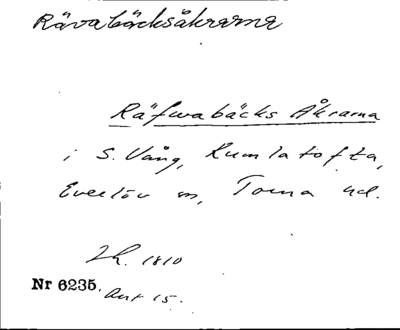 Rävabäcksåkrarna
Räfwabäcks Åkrarna
i S. Vång, Rumlatofta,
Everlöv sn, Torna hd.
Zh. 1810
Nr 6235.
Akt 15.